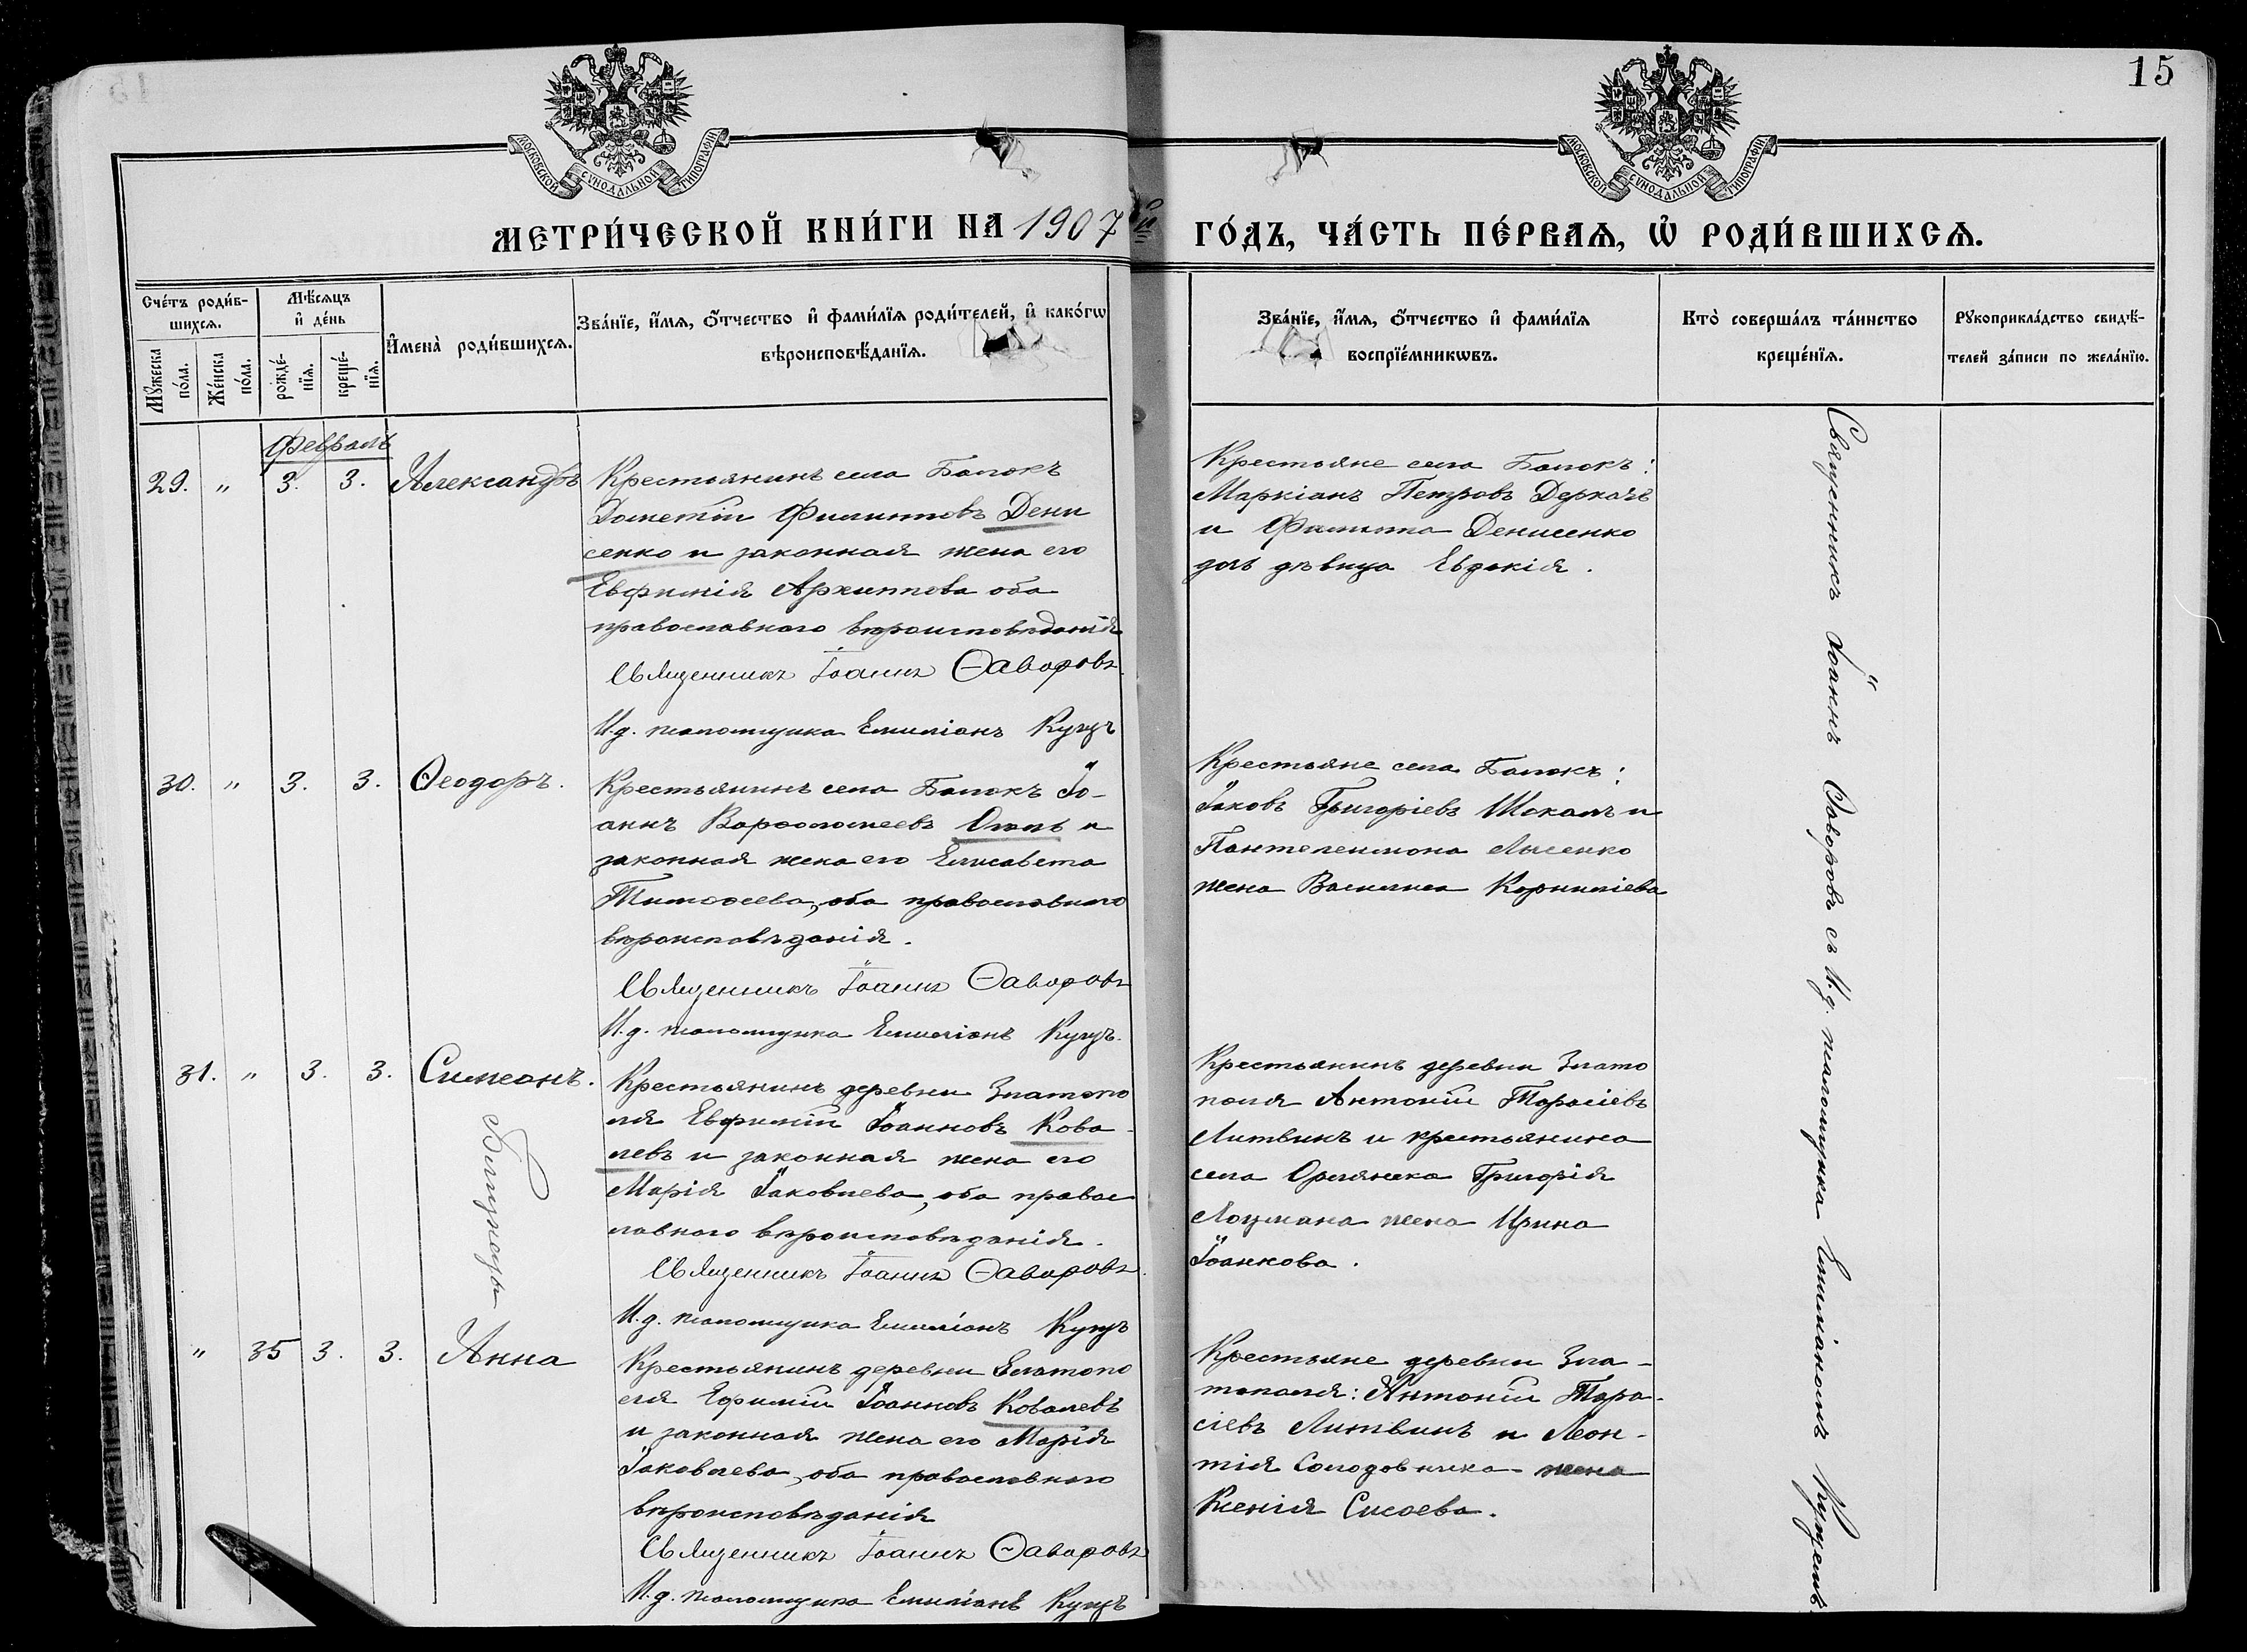 15
МОСКОВСКОЙ СѴНОДАЛЬНОЙ ТИПОГРАФІИ
МОСКОВСКОЙ СѴНОДАЛЬНОЙ ТИПОГРАФІИ
МЕТРИ́ЧЕСКОЙ КНИ́ГИ НА 1907 й ГО́ДЪ, ЧА́СТЬ ПЕ́РВАѦ, Ѽ РОДИ́ВШИХСѦ.
Сче́тъ роди́в-
шихсѧ.
Мꙋ́жеска по́ла.
Же́нска по́ла.
Мѣ́сѧцъ и҆ де́нь
рожде́-нїѧ.
креще́-нїѧ.
И҆мена̀ роди́вшихсѧ.
Зва́нїе, и҆́мѧ, ѻ҆́тчество и҆ фами́лїѧ роди́телей, и҆ како́гѡ
вѣроисповѣ́данїѧ.
Зва́нїе, и҆́мѧ, ѻ҆́тчество и҆ фами́лїѧ
воспрїе́мникѡвъ.
Кто̀ соверша́лъ та́инство
креще́нїѧ.
Рꙋкоприкла́дство свидѣ́-
телей за́писи по жела́нїю.
Февраль
29. " 3. 3. Александръ
Крестьянинъ села Балокъ
Дометій Филипповъ Дени
сенко и законная жена его
Евфимія Архиппова оба
православнаго вѣроисповѣданія
Священникъ Іоаннъ Ѳаворовъ
И.д. псаломщика Емиліанъ Куцъ
Крестьяне села Балокъ:
Маркіанъ Петровъ Деркачъ
и Филиппа Денисенко
дочь дѣвица Евдокія.
30. " 3. 3. Ѳеодоръ.
Крестьянинъ села Балокъ Іо-
аннъ Варѳоломеевъ и
законная жена его Елисавета
Тимоѳеева, оба православнаго
вѣроисповѣданія.
Священникъ Іоаннъ Ѳаворовъ
И.д. псаломщика Емиліанъ Куцъ.
Крестьяне села Балокъ:
Іаковъ Григоріевъ и
Пантелеимона Лысенко
жена Василиса Корниліева
31. " 3. 3. Симеонъ.
Близнецы
Крестьянинъ деревни Златопо
ля Евфимій Іоанновъ Кова-
левъ и законная жена его
Марія Іаковлева, оба правос
лавнаго вѣроисповѣданія.
Священникъ Іоаннъ Ѳаворовъ.
И.д. псаломщика Емиліанъ Куцъ
Крестьянинъ деревни Злато
поля Антоній Тарасіевъ
Литвинъ и крестьянина
села Орлянска Григорія
Лоцмана жена Ирина
Іоаннова.
" 35 3. 3. Анна
Крестьянинъ деревни Златопо
ля Ефимій Іоанновъ Ковалевъ
и законная жена его Марія
Іаковлева, оба православнаго
вѣроисповѣданія
Священникъ Іоаннъ Ѳаворовъ
И.д. псаломщика Емиліанъ Куцъ
Крестьяне деревни Зла-
тополя: Антоній Тара-
сіевъ Литвинъ и Леон-
тія Солодовника жена
Ксенія Сисоева.
Священникъ Іоаннъ Ѳаворовъ съ И.д. псаломщика Емиліаномъ Куцемъ.